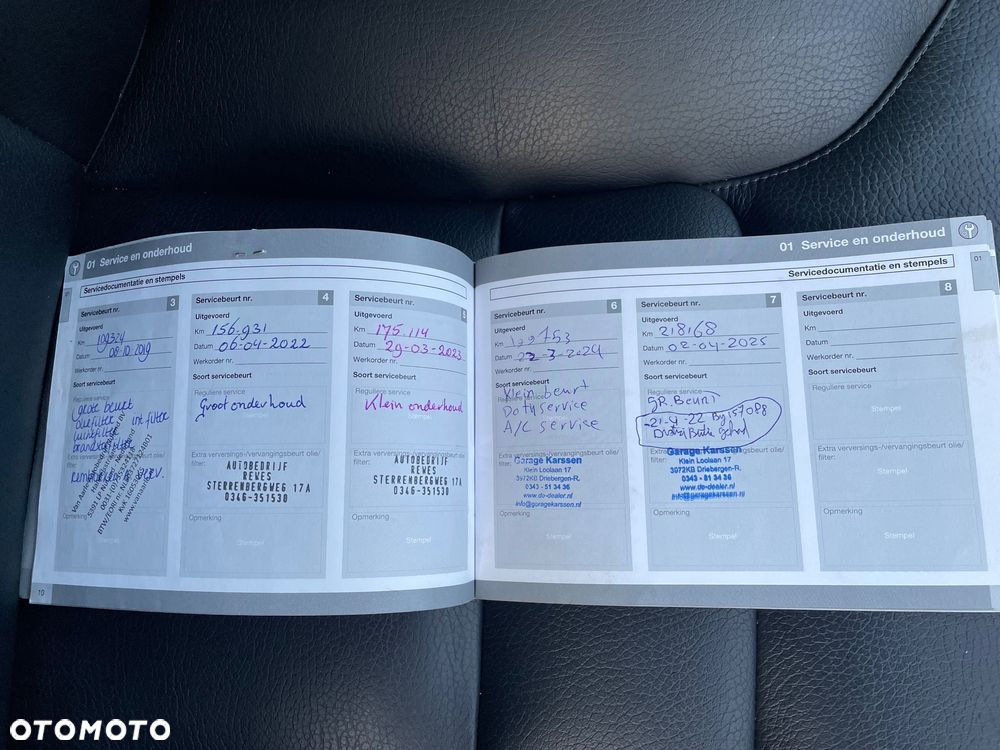 01 Service en onderhoud
Servicedocumentatie en stempels
Servicebeurt nr. 3
Uitgevoerd
Km 109324
Datum 08-10-2019
Werkorder nr.
Soort servicebeurt
Reguliere service
grote beurt
oliefilter int filter
luchtfilter
brandstoffilter
Extra verversings-/vervangingsbeurt olie/
filter:
remvloeistof
www.vanaart
Opmerking
Stempel
10
Servicebeurt nr. 4
Uitgevoerd
Km 156.931
Datum 06-04-2022
Werkorder nr.
Soort servicebeurt
Reguliere service
Groot onderhoud
Extra verversings-/vervangingsbeurt olie/
filter:
AUTOBEDRIJF
REWES
STERRENBERGWEG 17A
0346-351530
Opmerking
Stempel
Servicebeurt nr. 5
Uitgevoerd
Km 175.114
Datum 29-03-2023
Werkorder nr.
Soort servicebeurt
Reguliere service
Klein onderhoud
Extra verversings-/vervangingsbeurt olie/
filter:
AUTOBEDRIJF
REWES
STERRENBERGWEG 17A
0346-351530
Opmerking
Stempel
01 Service en onderhoud
01
Servicedocumentatie en stempels
Servicebeurt nr. 6
Uitgevoerd
Km 199753
Datum 22-3-2024
Werkorder nr.
Soort servicebeurt
Reguliere service
Klein beurt
service
A/C service
Extra verversings-/vervangingsbeurt olie/
filter:
Garage Karssen
Klein Loolaan 17
3972KB Driebergen-R.
0343 - 51 34 36
www.de-dealer.nl
info@garagekarssen.nl
Opmerking
Stempel
Servicebeurt nr. 7
Uitgevoerd
Km 218168
Datum 02-04-2025
Werkorder nr.
Soort servicebeurt
Reguliere service
GR. Beurt
-21-4-22 By 157088
Extra verversings-/vervangingsbeurt olie/
filter:
Garage Karssen
Klein Loolaan 17
3972KB Driebergen-R.
0343 - 51 34 36
www.de-dealer.nl
info@garagekarssen.nl
Opmerking
Stempel
Servicebeurt nr. 8
Uitgevoerd
Km
Datum
Werkorder nr.
Soort servicebeurt
Reguliere service
Stempel
Extra verversings-/vervangingsbeurt olie/
filter:
Stempel
Opmerking
Stempel
OTOMOTO